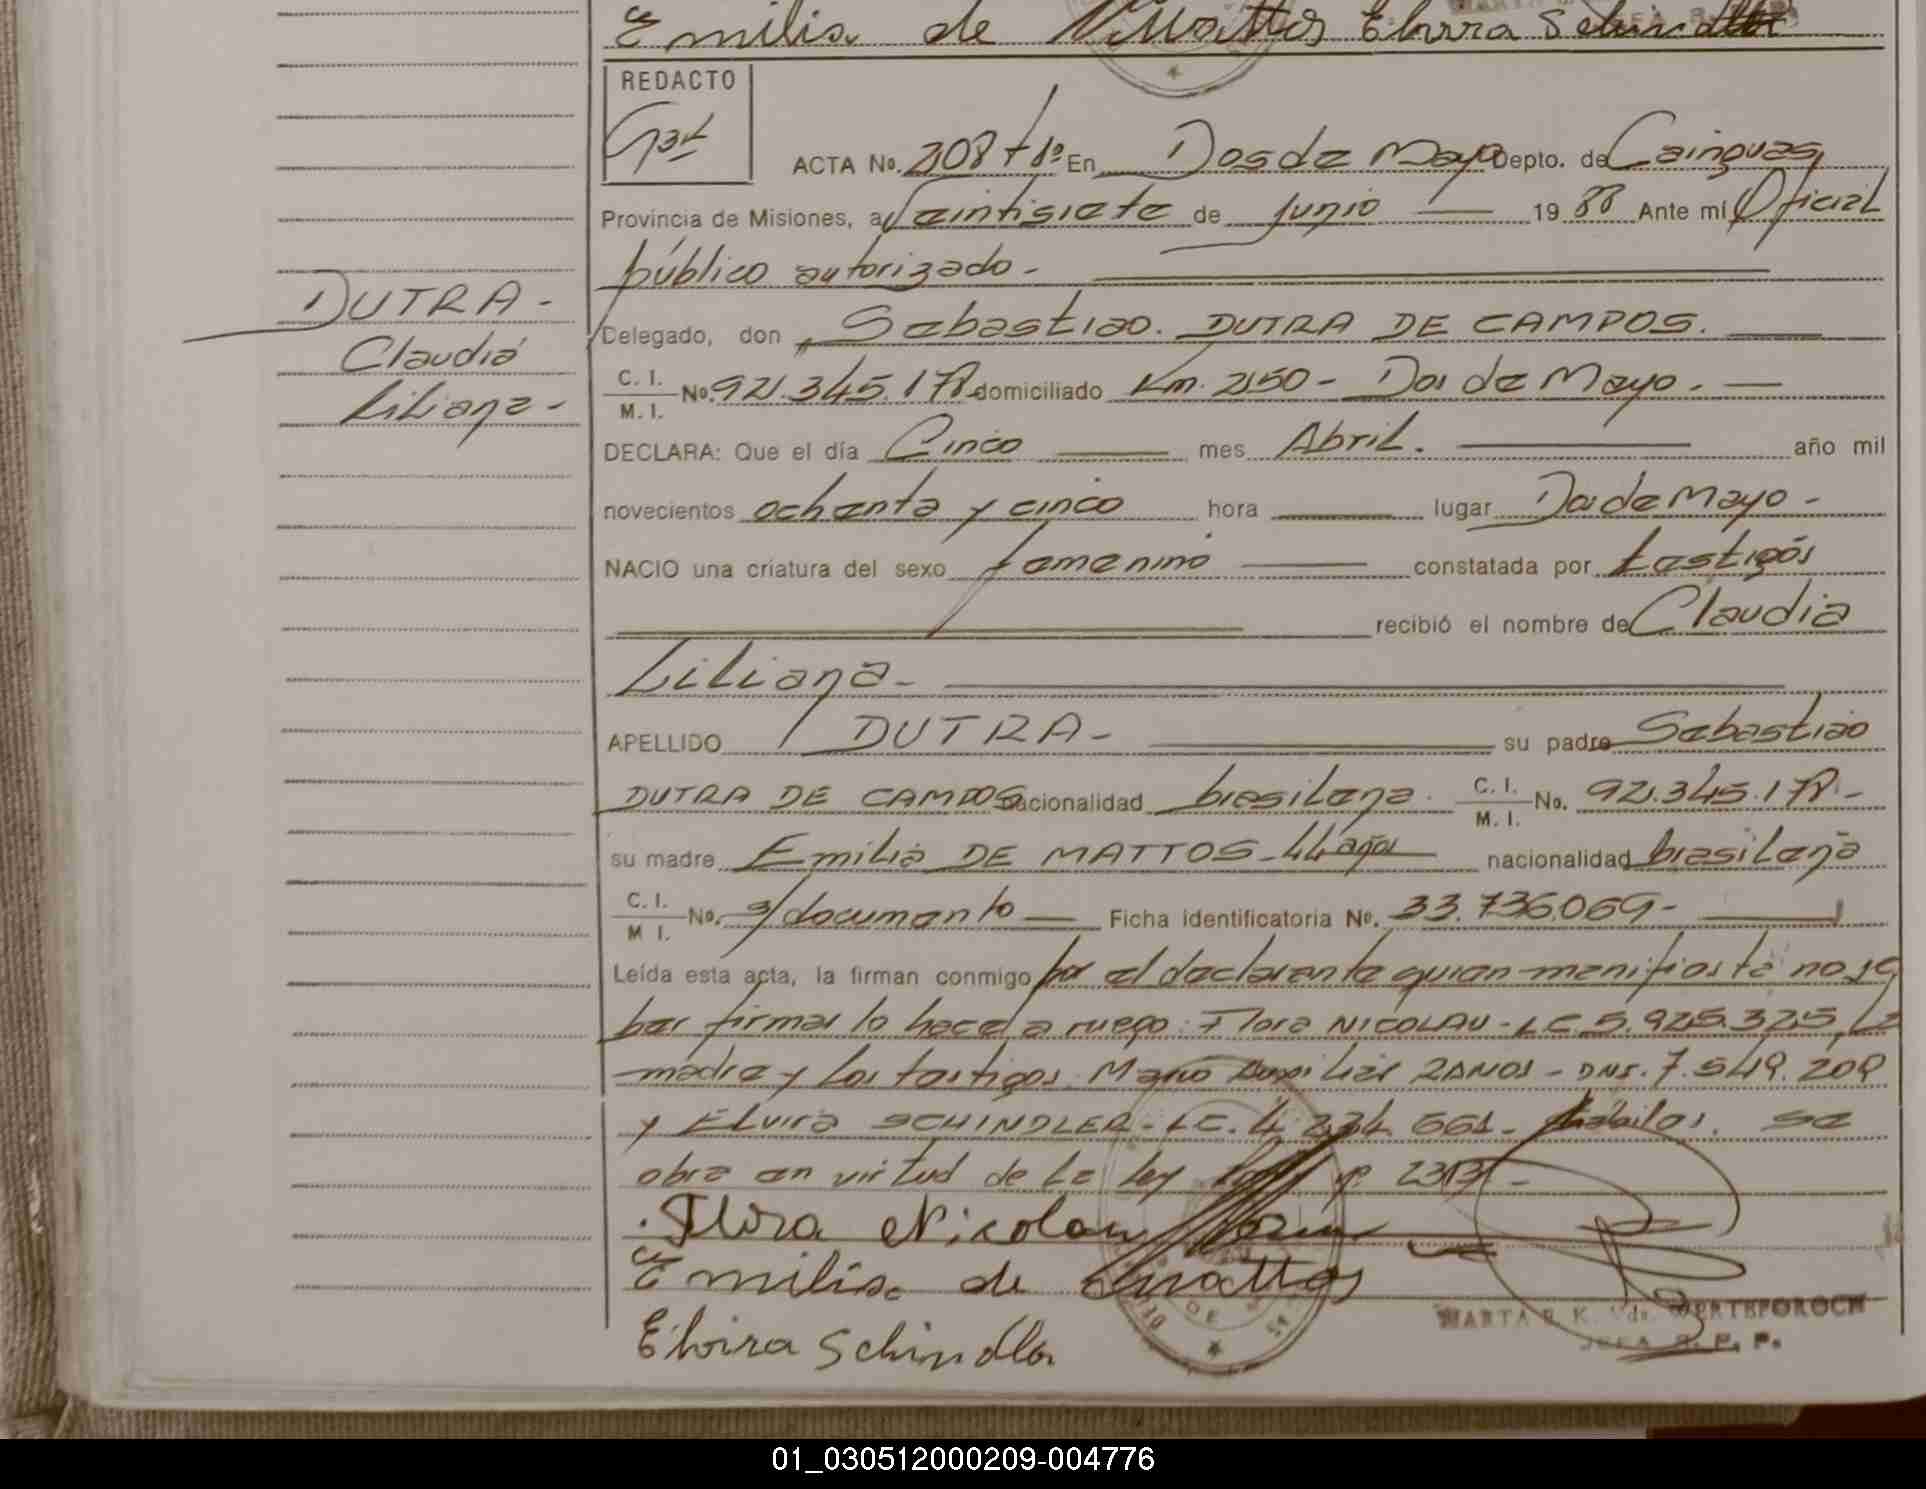 Emilia de Mattos Elvira Schindler
REDACTO
ACTA No. 208 tº 1º En Dos de Mayo Depto. de Cainguas
Provincia de Misiones, a Veintisiete de Junio 19 88 Ante mí Oficial
público autorizado-
DUTRA-
Delegado, don Sebastiao. DUTRA DE CAMPOS.
Claudia
C. I.
M. I. No. domiciliado Km. 250- Dos de Mayo.-
Liliana-
DECLARA: Que el día Cinco mes Abril. año mil
novecientos ochenta y cinco hora lugar Dos de Mayo-
NACIO una criatura del sexo femenino constatada por testigos
recibió el nombre de Claudia
Liliana-
APELLIDO DUTRA- su padre Sebastiao
DUTRA DE CAMPOS nacionalidad brasilena. C. I.
M. I. No.
su madre Emilia DE MATTOS-44 años nacionalidad brasileña
C. I.
M I. No. s/documento Ficha identificatoria No. 33.736.069-
Leída esta acta, la firman conmigo por el declarante quien manifiesta no sa
ber firmar lo hace a ruego: Flora NICOLAU-LC.5.925.325, La
madre y los testigos. Mario RAMOS-DNI.7.549.209
y Elvira SCHINDLER-LC.4.234.661- habiles. Se
obra en virtud de la ley
Flora Nicolau
Emilia de Mattos
MARTA R. K. Vda. WERTEFOROCH
JEFA R. P. P.
Elvira Schindler
01_030512000209-004776